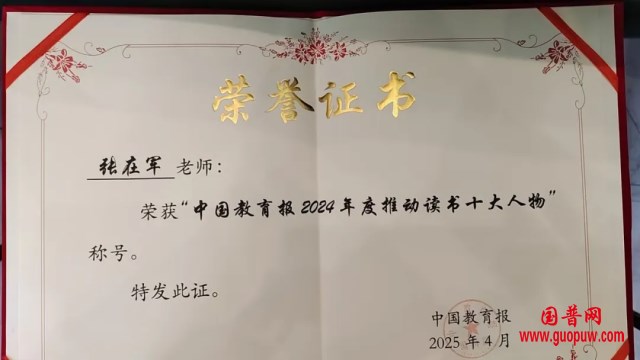 荣誉证书
张在军 老师：
荣获“中国教育报2024年度推动读书十大人物”
称号。
特发此证。
中国教育报
2025年4月
国普网
www.guopuw.com